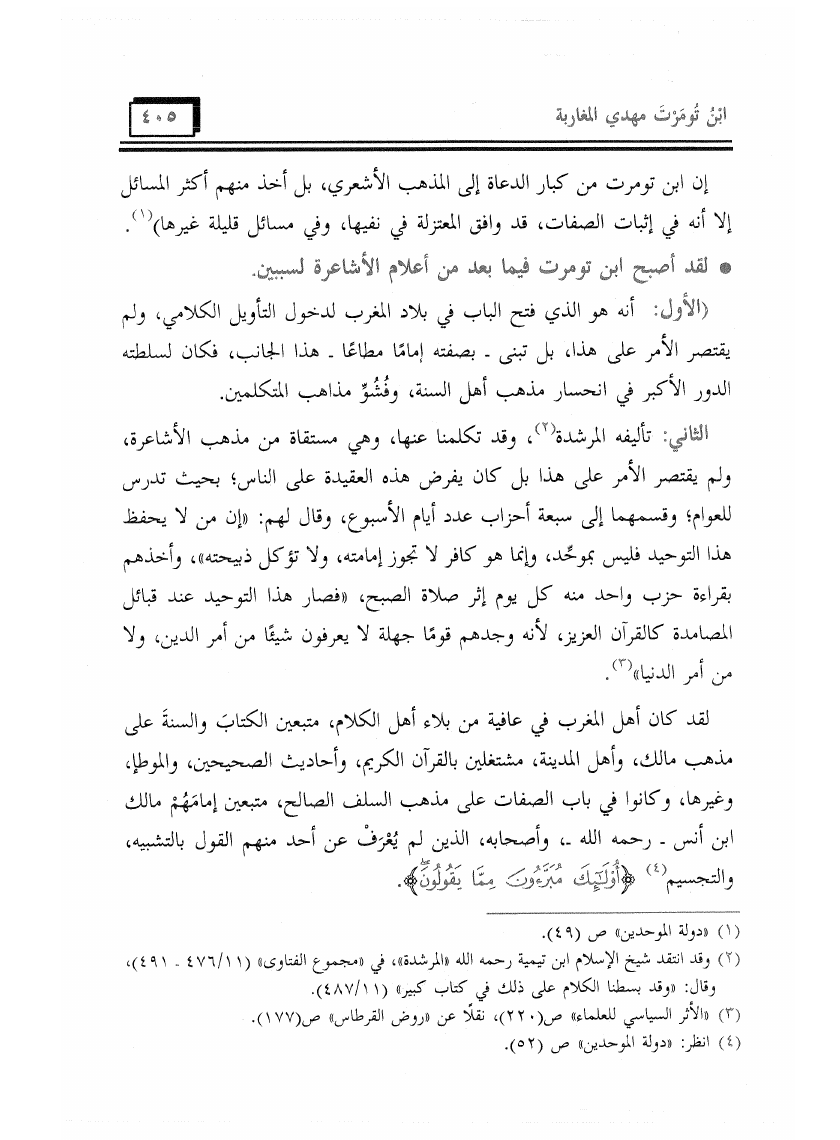 ابْنُ تُومَرْتَ مهدي المغاربة
٤٠٥
إن ابن تومرت من كبار الدعاة إلى المذهب الأشعري، بل أخذ منهم أكثر المسائل
إلا أنه في إثبات الصفات، قد وافق المعتزلة في نفيها، وفي مسائل قليلة غيرها)(١).
● لقد أصبح ابن تومرت فيما بعد من أعلام الأشاعرة لسببين.
(الأول: أنه هو الذي فتح الباب في بلاد المغرب لدخول التأويل الكلامي، ولم
يقتصر الأمر على هذا، بل تبنى ـ بصفته إمامًا مطاعًا ـ هذا الجانب، فكان لسلطته
الدور الأكبر في انحسار مذهب أهل السنة، وفُشُوِّ مذاهب المتكلمين.
الثاني: تأليفه المرشدة(٢)، وقد تكلمنا عنها، وهي مستقاة من مذهب الأشاعرة،
ولم يقتصر الأمر على هذا بل كان يفرض هذه العقيدة على الناس؛ بحيث تدرس
للعوام؛ وقسمهما إلى سبعة أحزاب عدد أيام الأسبوع، وقال لهم: «إن من لا يحفظ
هذا التوحيد فليس بموحِّد، وإنما هو كافر لا تجوز إمامته، ولا تؤكل ذبيحته»، وأخذهم
بقراءة حزب واحد منه كل يوم إثر صلاة الصبح، «فصار هذا التوحيد عند قبائل
المصامدة كالقرآن العزيز، لأنه وجدهم قومًا جهلة لا يعرفون شيئًا من أمر الدين، ولا
من أمر الدنيا»(٣).
لقد كان أهل المغرب في عافية من بلاء أهل الكلام، متبعين الكتابَ والسنةَ على
مذهب مالك، وأهل المدينة، مشتغلين بالقرآن الكريم، وأحاديث الصحيحين، والموطإ،
وغيرها، وكانوا في باب الصفات على مذهب السلف الصالح، متبعين إمامَهُمْ مالك
ابن أنس ـ رحمه الله ـ، وأصحابه، الذين لم يُعْرَفْ عن أحد منهم القول بالتشبيه،
والتجسيم(٤) ﴿أُوْلَٰٓئِكَ مُبَرَّءُونَ مِمَّا يَقُولُونَۖ﴾.
(١) «دولة الموحدين» ص (٤٩).
(٢) وقد انتقد شيخ الإسلام ابن تيمية رحمه الله «المرشدة»، في «مجموع الفتاوى» (٤٧٦/١١ ـ ٤٩١)،
وقال: «وقد بسطنا الكلام على ذلك في كتاب كبير» (٤٨٧/١١).
(٣) «الأثر السياسي للعلماء» ص(٢٢٠)، نقلًا عن «روض القرطاس» ص(١٧٧).
(٤) انظر: «دولة الموحدين» ص (٥٢).